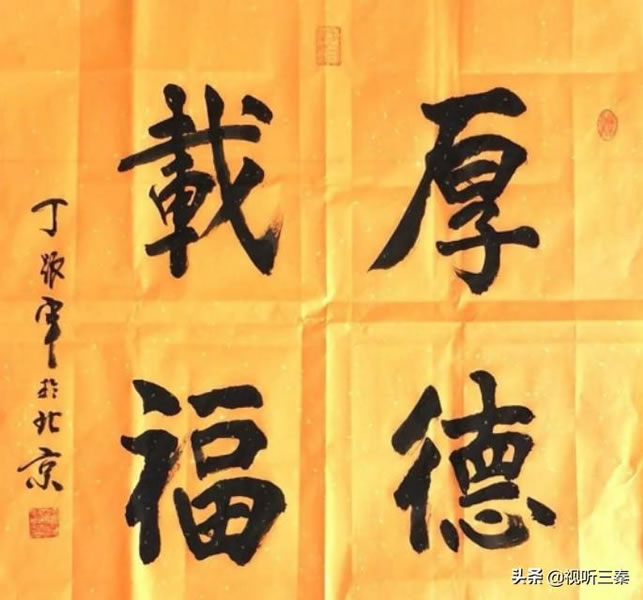 厚德
載福
丁军於北京
头条 @视听三秦